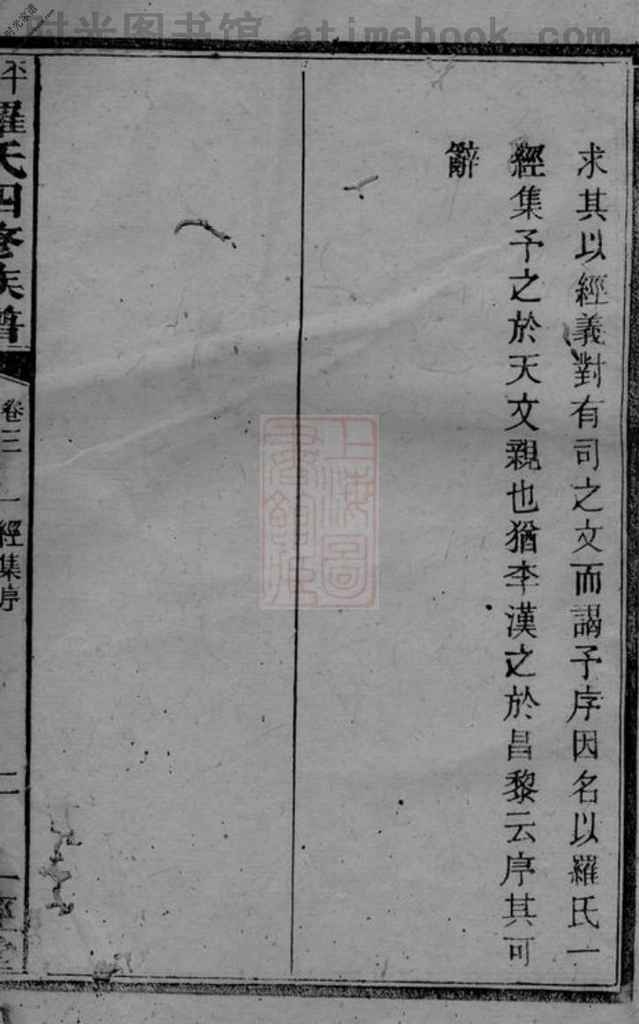 时光图书馆 www.atimebook.com
求其以經義對有司之文而謁予序因名以羅氏一
經集予之於天文親也猶李漢之於昌黎云序其可
辭
羅氏四修族譜
卷三
一經集序
二
一經堂
上海圖
書館藏